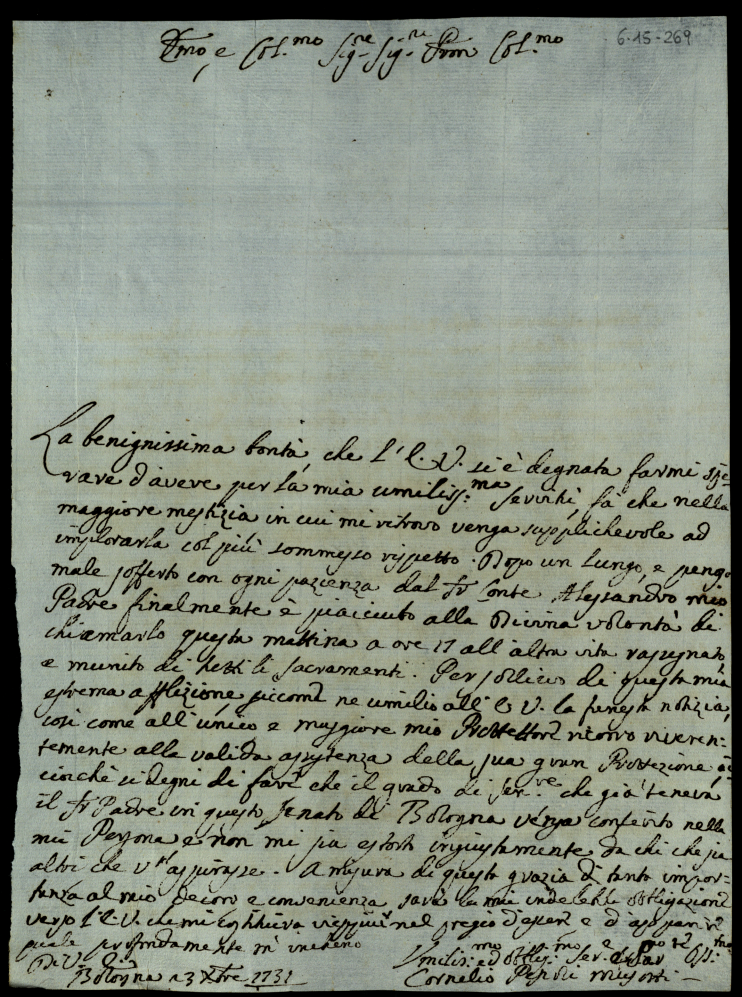 6-15-269
E.mo, e Col.mo Sig.re Sig.re Pron Col.mo
La benignissima bontà, che l'E. V. si è degnata farmi spe-
rare d'avere per la mia umiliss.ma servitù, fà che nella
maggiore mestizia in cui mi ritrovo venga supplichevole ad
implorarla col più sommesso rispetto. Dopo un lungo, e
male sofferto con ogni pazienza dal Sr Conte Alessandro mio
Padre finalmente è piaciuto alla Divina volontà di
chiamarlo questa mattina a ore 17 all'altra vita rassegnato
e munito di tutti li Sacramenti. Per sollievo di questa mia
estrema afflizione siccome ne umilio all'E V. la funesta notizia,
così come all'unico e maggiore mio Protettore ricorro riveren-
temente alla valida assistenza della sua gran Protezione ac-
ciochè si degni di fare che il grado di Sen.re che già teneva
il Sr Padre in questo Senato di Bologna venga conferito nella
mia Persona e non mi sia estorto ingiustamente da chi che sia
altri che vi aspirasse. A misura di questa grazia di tanta impor-
tanza al mio decoro e convenienza sarà la mia indelebile obbligazione
verso l'E. V. che mi costituirà vieppiù nel pregio d'essere e d'apparire
quale profondamente m'inchino
Di V. E.
Bologna a 3 Xbre 1731
Umilis.mo ed Obblig.mo Ser.e
Cornelio Pepoli